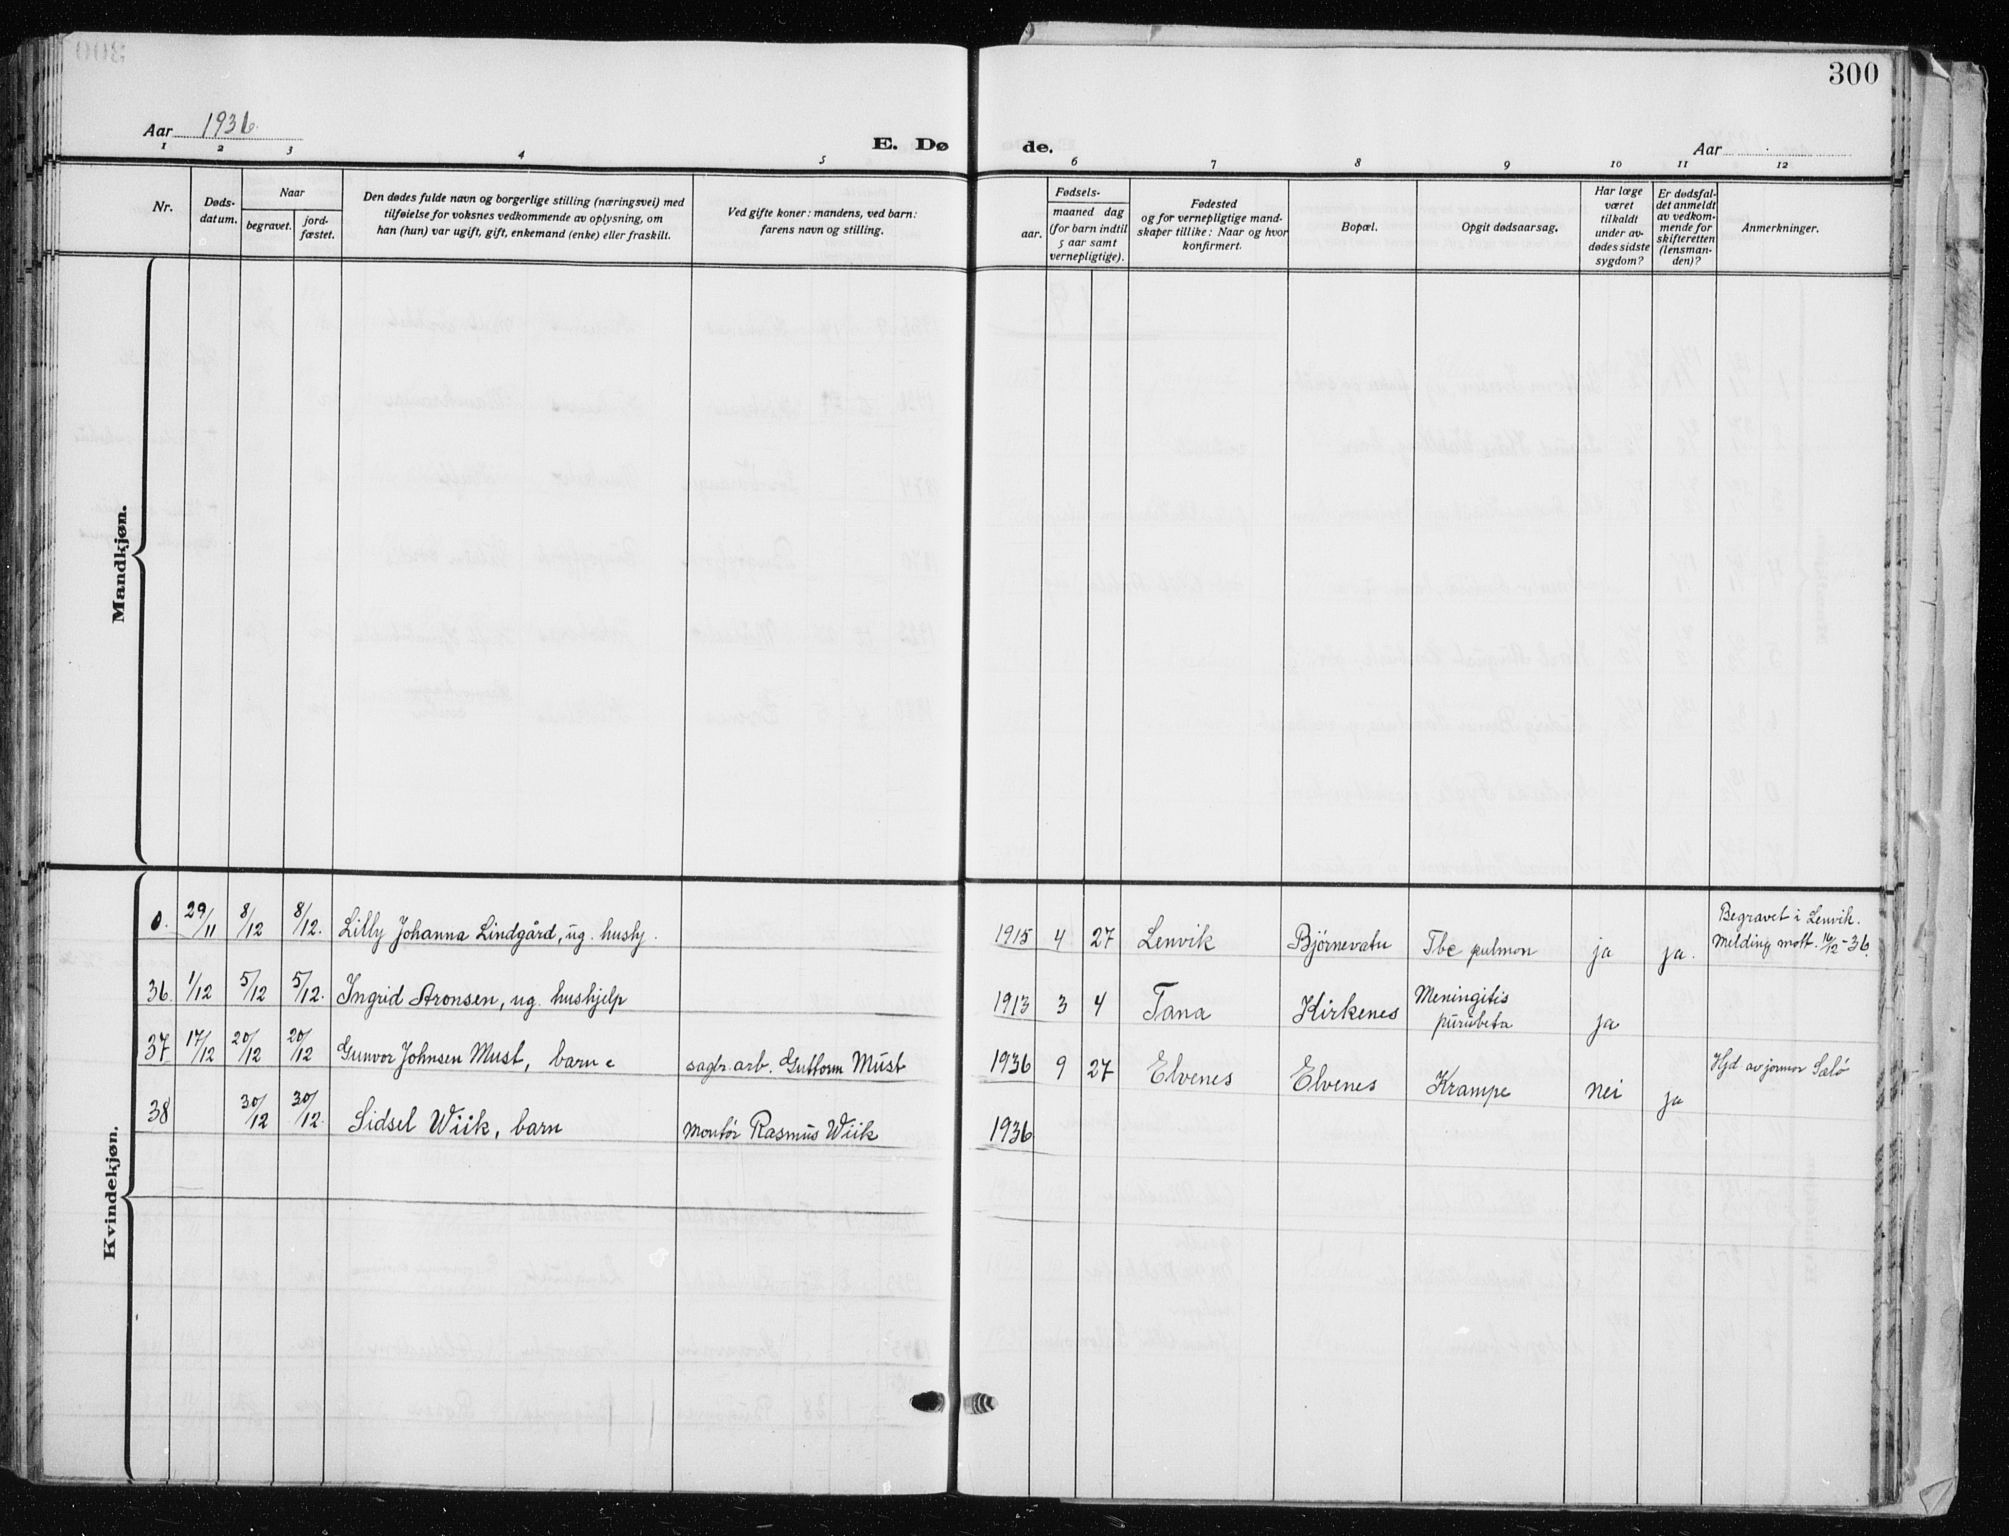 300
Aar 1936.
E. Dø de.
Aar
1 2 3 4 5 6 7 8 9 10 11 12
Nr.
Døds-
datum.
Naar
begravet.
jord-
fæstet.
Den dødes fulde navn og borgerlige stilling (næringsvei) med
tilføielse for voksnes vedkommende av oplysning, om
han (hun) var ugift, gift, enkemand (enke) eller fraskilt.
Ved gifte koner: mandens, ved barn:
farens navn og stilling.
Fødsels-
aar.
maaned dag
(for barn indtil
5 aar samt
vernepligtige).
Fødested
og for vernepligtige mand-
skaper tillike: Naar og hvor
konfirmert.
Bopæl.
Opgit dødsaarsag.
Har læge
været
tilkaldt
under av-
dødes sidste
sygdom?
Er dødsfal-
det anmeldt
av vedkom-
mende for
skifteretten
(lensman-
den)?
Anmerkninger.
Mandkjøn.
Kvindekjøn.
0. 29/11 8/12 8/12. Lilly Johanna Lindgård, ug. hushj. 1915 4 27 Lenvik Bjørnevatn Tbc pulmon ja ja. Begravet i Lenvik.
Melding mott. 16/12-36.
36. 1/12 5/12 5/12. Ingrid Aronsen, ug. hushjelp 1913 3 4 Tana Kirkenes Meningitis
ja
37 17/12 20/12 20/12 Gunvor Johnsen Must, barn sagbr. arb. Guttorm Must 1936 9 27 Elvenes Elvenes Krampe nei ja Hjd av jormor Sælø
38 30/12 30/12. Sidsel Wiik, barn montør Rasmus Wiik 1936